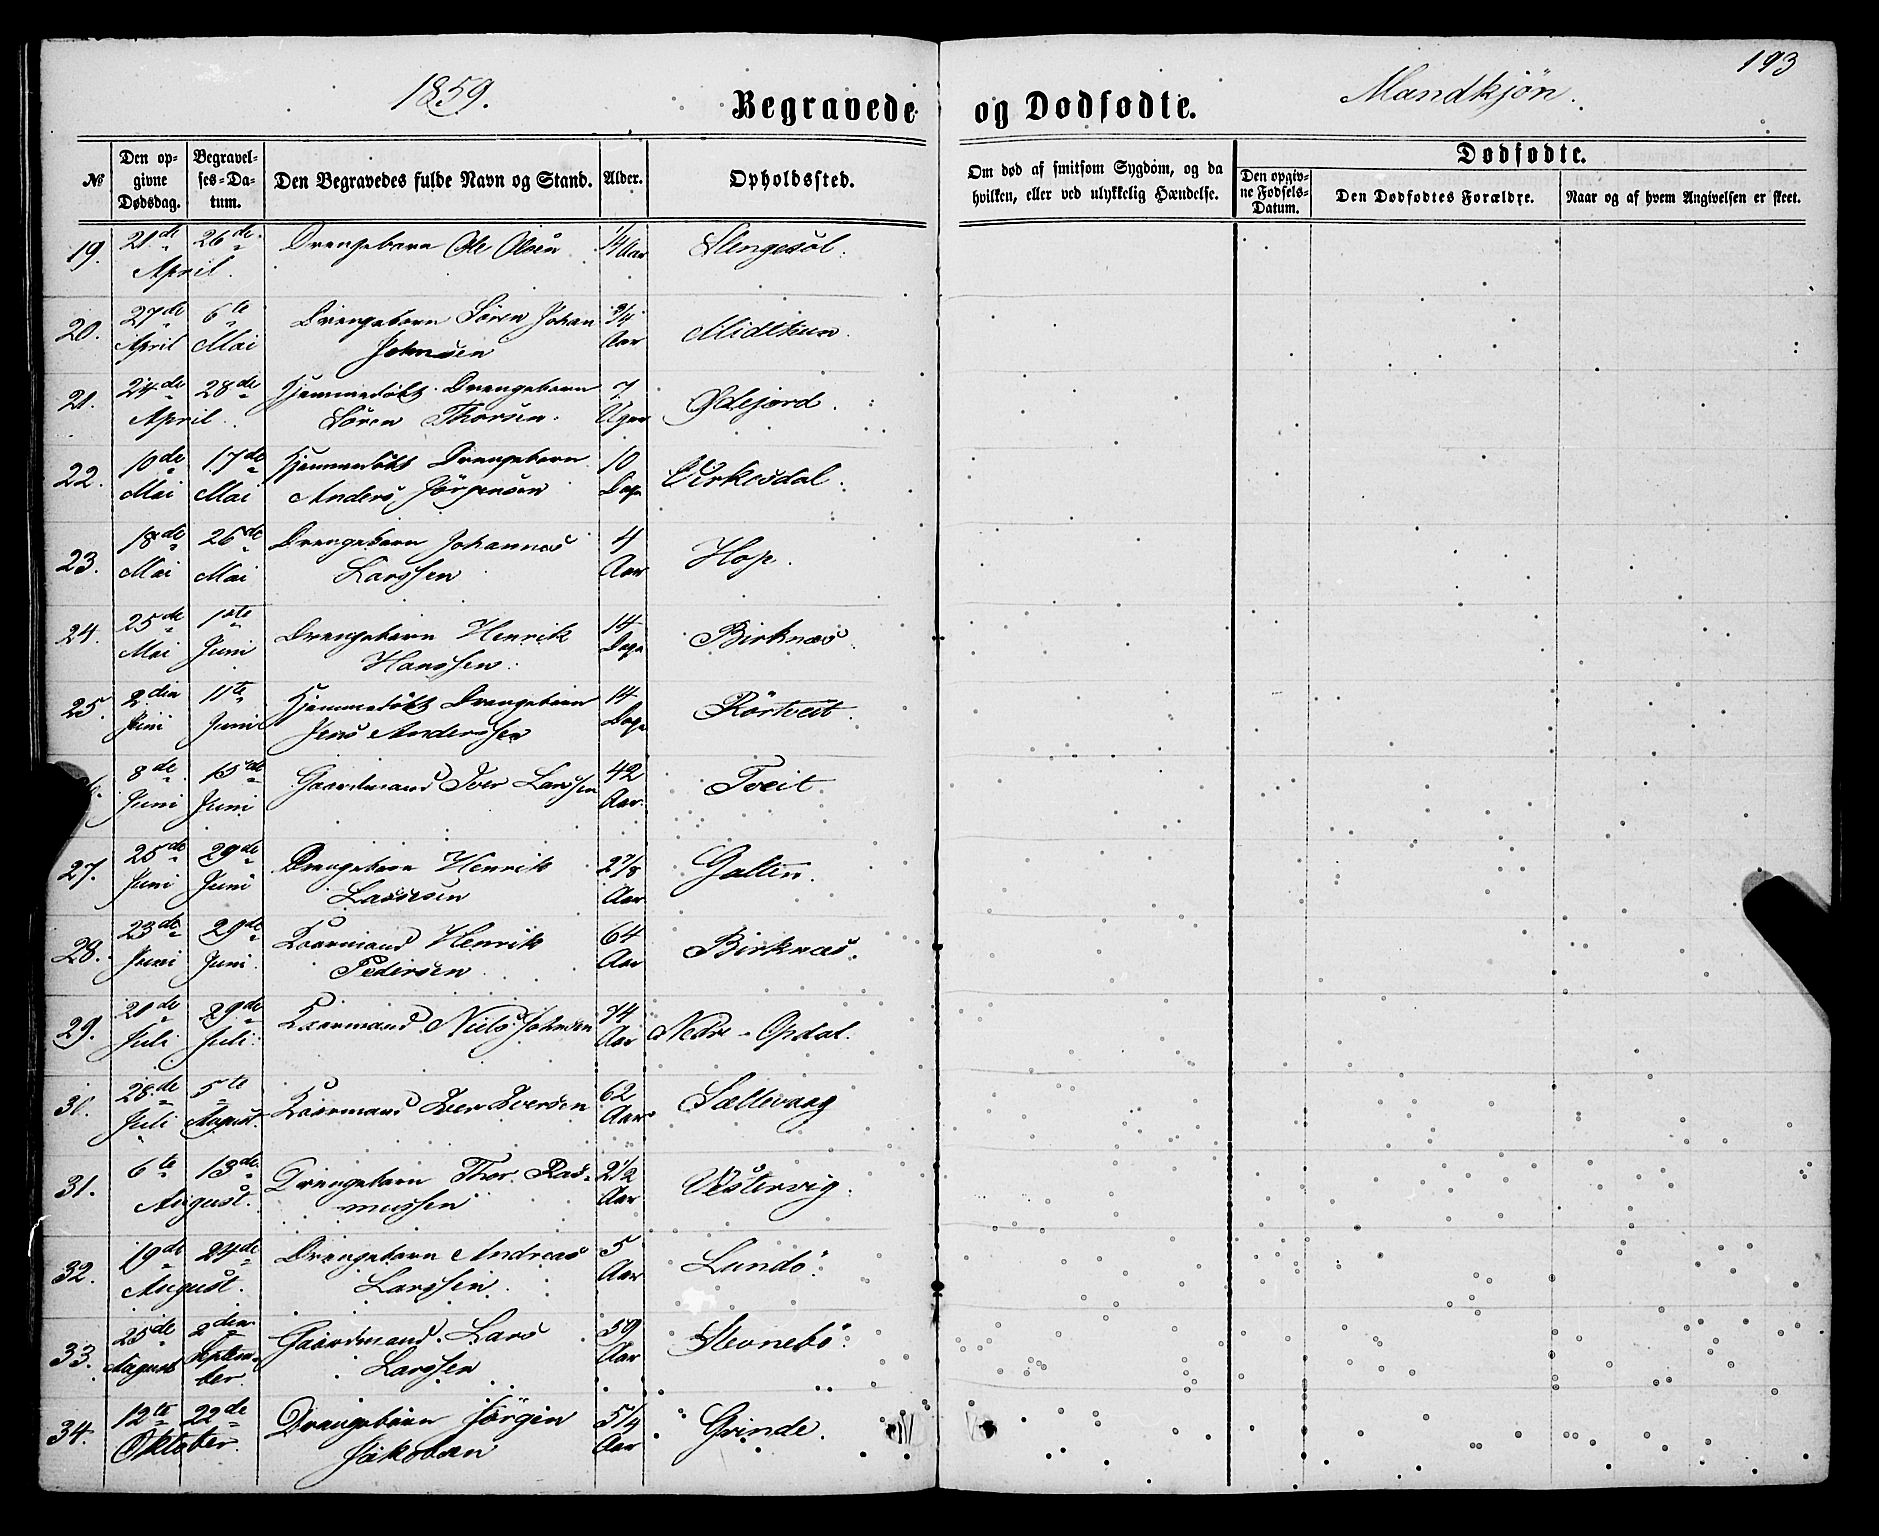 193
1859.
Begravede og Dødfødte.
Mandkjøn.
№
Den opgivne Dødsdag.
Begravelses-Datum.
Den Begravedes fulde Navn og Stand.
Alder.
Opholdssted.
Om død af smitsom Sygdom, og da hvilken, eller ved ulykkelig Hændelse.
Dødfødte.
Den opgivne Fødsels-Datum.
Den Dødfødtes Forældre.
Naar og af hvem Angivelsen er skeet.
19. 21de 26de Drengebarn Ole Olsen 1/4 Aar
April.
20. 27de 6te Drengebarn Sören Johan 3/4 Midthun.
April Mai Johnsen Aar
21. 24de 28de Hjemmedöbt Drengebarn 7 Ødejord.
April. Sören Thorsen. Uger
22. 10de 17de Hjemmedöbt Drengebarn 10 Virkesdal.
Mai Mai Anders Jörgensen Dage
23. 18de 26de Drengebarn Johannes 4 Hope.
Mai Mai Larssen Aar
24. 25de 1ste Drengebarn Henrik 14 Birknæs.
Mai Juni Hanssen. Dage
25. 2den 11te Hjemmedöbt Drengebarn 14 Rörtveit.
Juni Juni Jens Anderssen Dage
8de 15de Gaardmand Iver Larssen 42 Tveit.
Juni Juni Aar.
27. 25de 29de Drengebarn Henrik 2 7/8 Galten.
Juni Juni Lassesen Aar
28. 23de 29de Kaarmand Henrik 64 Birknæs.
Juni Juni. Pedersen Aar
29. 21de 29de Kaarmand Niels Johnsen 74 Nedre-Opdal.
Juli Juli. Aar
30. 28de 5te Kaarmand Iver Iversen 62 Sællevaag
Juli August. Aar
31. 6te 13de Drengebarn Thor Ras- 2 1/2 Vestervig.
August. mussen Aar
32. 19de 24de Drengebarn Andreas 5 Lundö.
August. Larssen. Aar
33. 25de 2den Gaardmand Lars 59
August Septem- Larssen Aar
ber.
34. 12te 22de Drengebarn Jörgen 5 1/4 Grinde.
Oktober. Jakobsen Aar